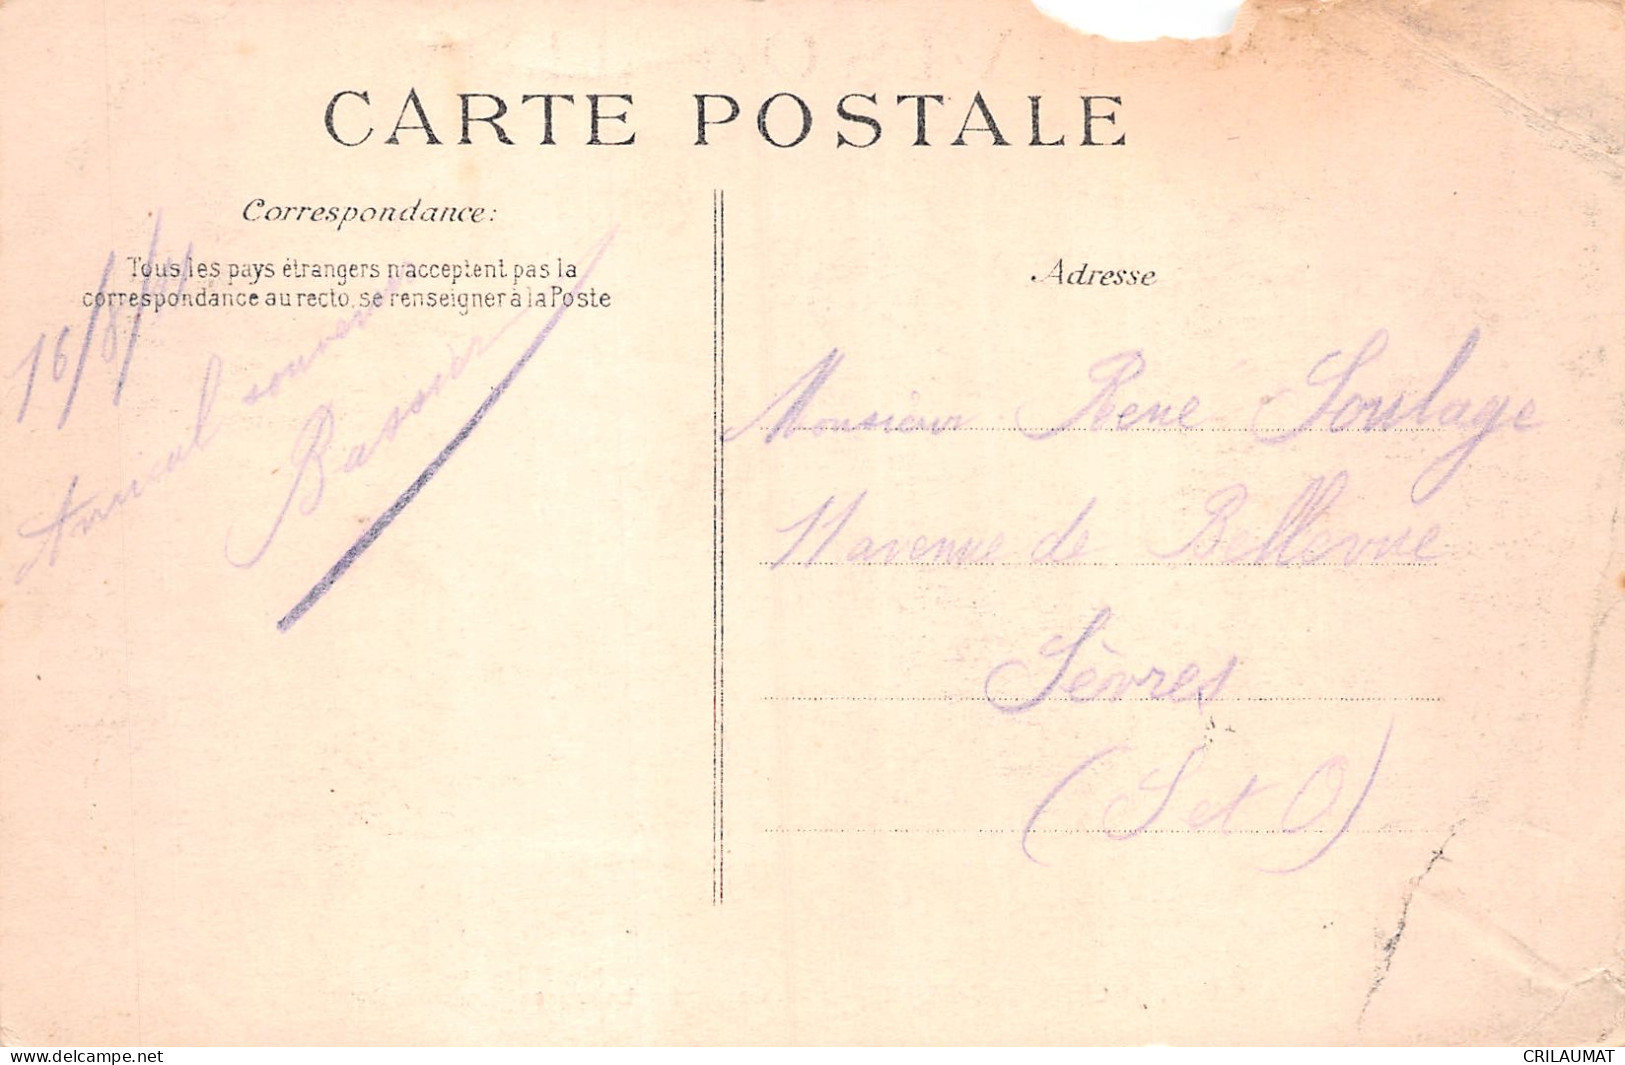 CARTE POSTALE
Correspondance:
Tous les pays étrangers n'acceptent pas la
correspondance au recto, se renseigner à la Poste
16/8/
Amical souvenir
Adresse
Monsieur René Soulage
11 avenue de Bellevue
Sèvres
(S et O)
delcampe.net
CRILAUMAT